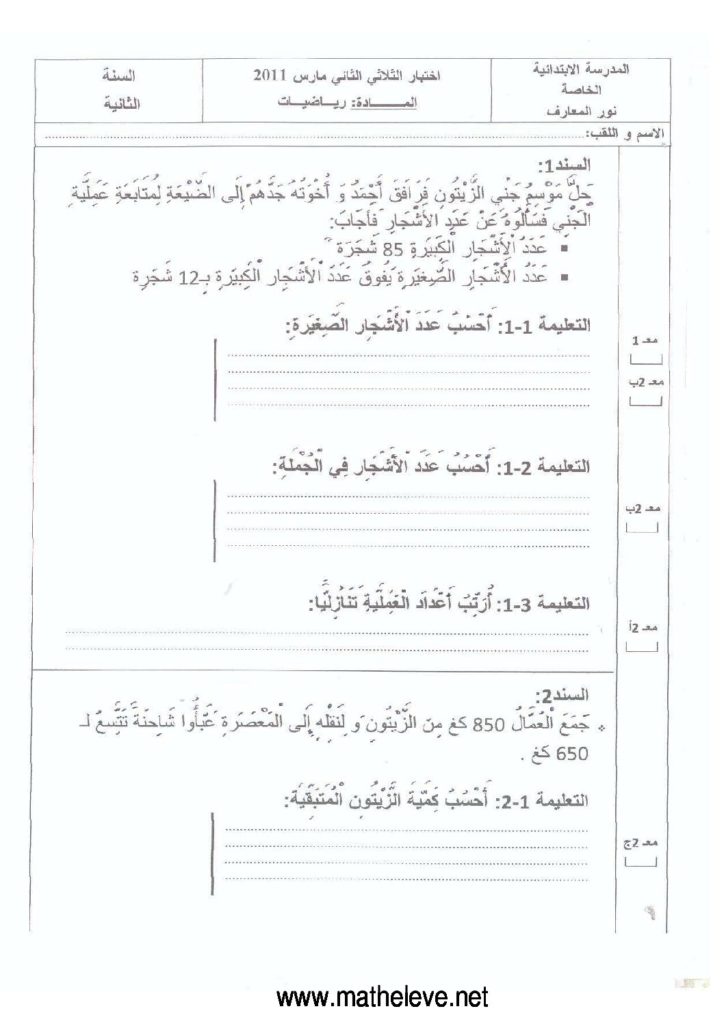 المدرسة الابتدائية
الخاصة
نور المعارف
اختبار الثلاثي الثاني مارس 2011
المـــــــادة: ريـاضيـــات
السنة
الثانية
الاسم و اللقب:
السند1:
حَلَّ مَوْسِمُ جَنْيِ الزَّيْتُونِ فَرَافَقَ أَحْمَدُ وَ أُخْوَتُهُ جَدَّهُمْ إِلَى الضَّيْعَةِ لِمُتَابَعَةِ عَمَلِيَّةِ
الجَنْيِ فَسَأَلُوهُ عَنْ عَدَدِ الأَشْجَارِ فَأَجَابَ:
▪ عَدَدُ الأَشْجَارِ الْكَبِيرَةِ 85 شَجَرَة
▪ عَدَدُ الْأَشْجَارِ الصَّغِيرَةِ يَفُوقُ عَدَدَ الْأَشْجَارِ الْكَبِيَرةِ بـ12 شَجَرة
التعليمة 1-1: أَحْسُبُ عَدَدَ الْأَشْجَارِ الصَّغِيرَةِ:
معـ 1
معـ 2ب
التعليمة 2-1: أَحْسُبُ عَدَدَ الْأَشْجَارِ فِي الْجُمْلَةِ:
معـ 2ب
التعليمة 3-1: أُرَتِّبُ أَعْدَادَ الْعَمَلِيَّةِ تَنَازُلِيًّا:
معـ 2أ
السند2:
جَمَعَ الْعُمَّالُ 850 كغ مِنَ الزَّيْتُونِ وَ لِنَقْلِهِ إِلَى الْمَعْصَرَةِ عَبَّأُوا شَاحِنَةً تَتَّسِعُ لـ
650 كغ .
التعليمة 1-2: أَحْسُبُ كَمِّيَّةَ الزَّيْتُونِ الْمُتَبَقِّيَةَ:
معـ 2ج
www.matheleve.net